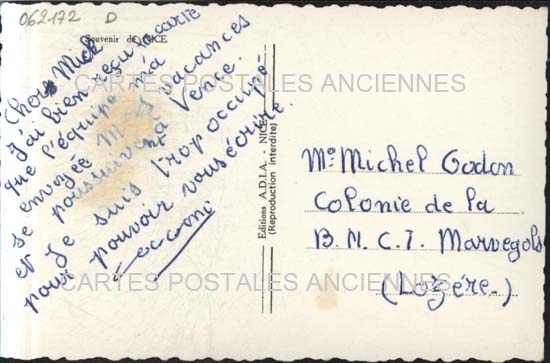 062172 D
Souvenir de NICE
Cher Mick
J'ai bien reçu la carte
que l'équipe m'a
envoyée Mes vacances
et se poursuivent à Vence.
Je suis trop occupé
pour pouvoir vous écrire.
Editions A.D.I.A. - NICE
(Reproduction interdite)
Mr Michel Godon
Colonie de la
B.N.C.I. Marvegols
(Lozére_)
CARTES POSTALES ANCIENNES
CARTES POSTALES ANCIENNES